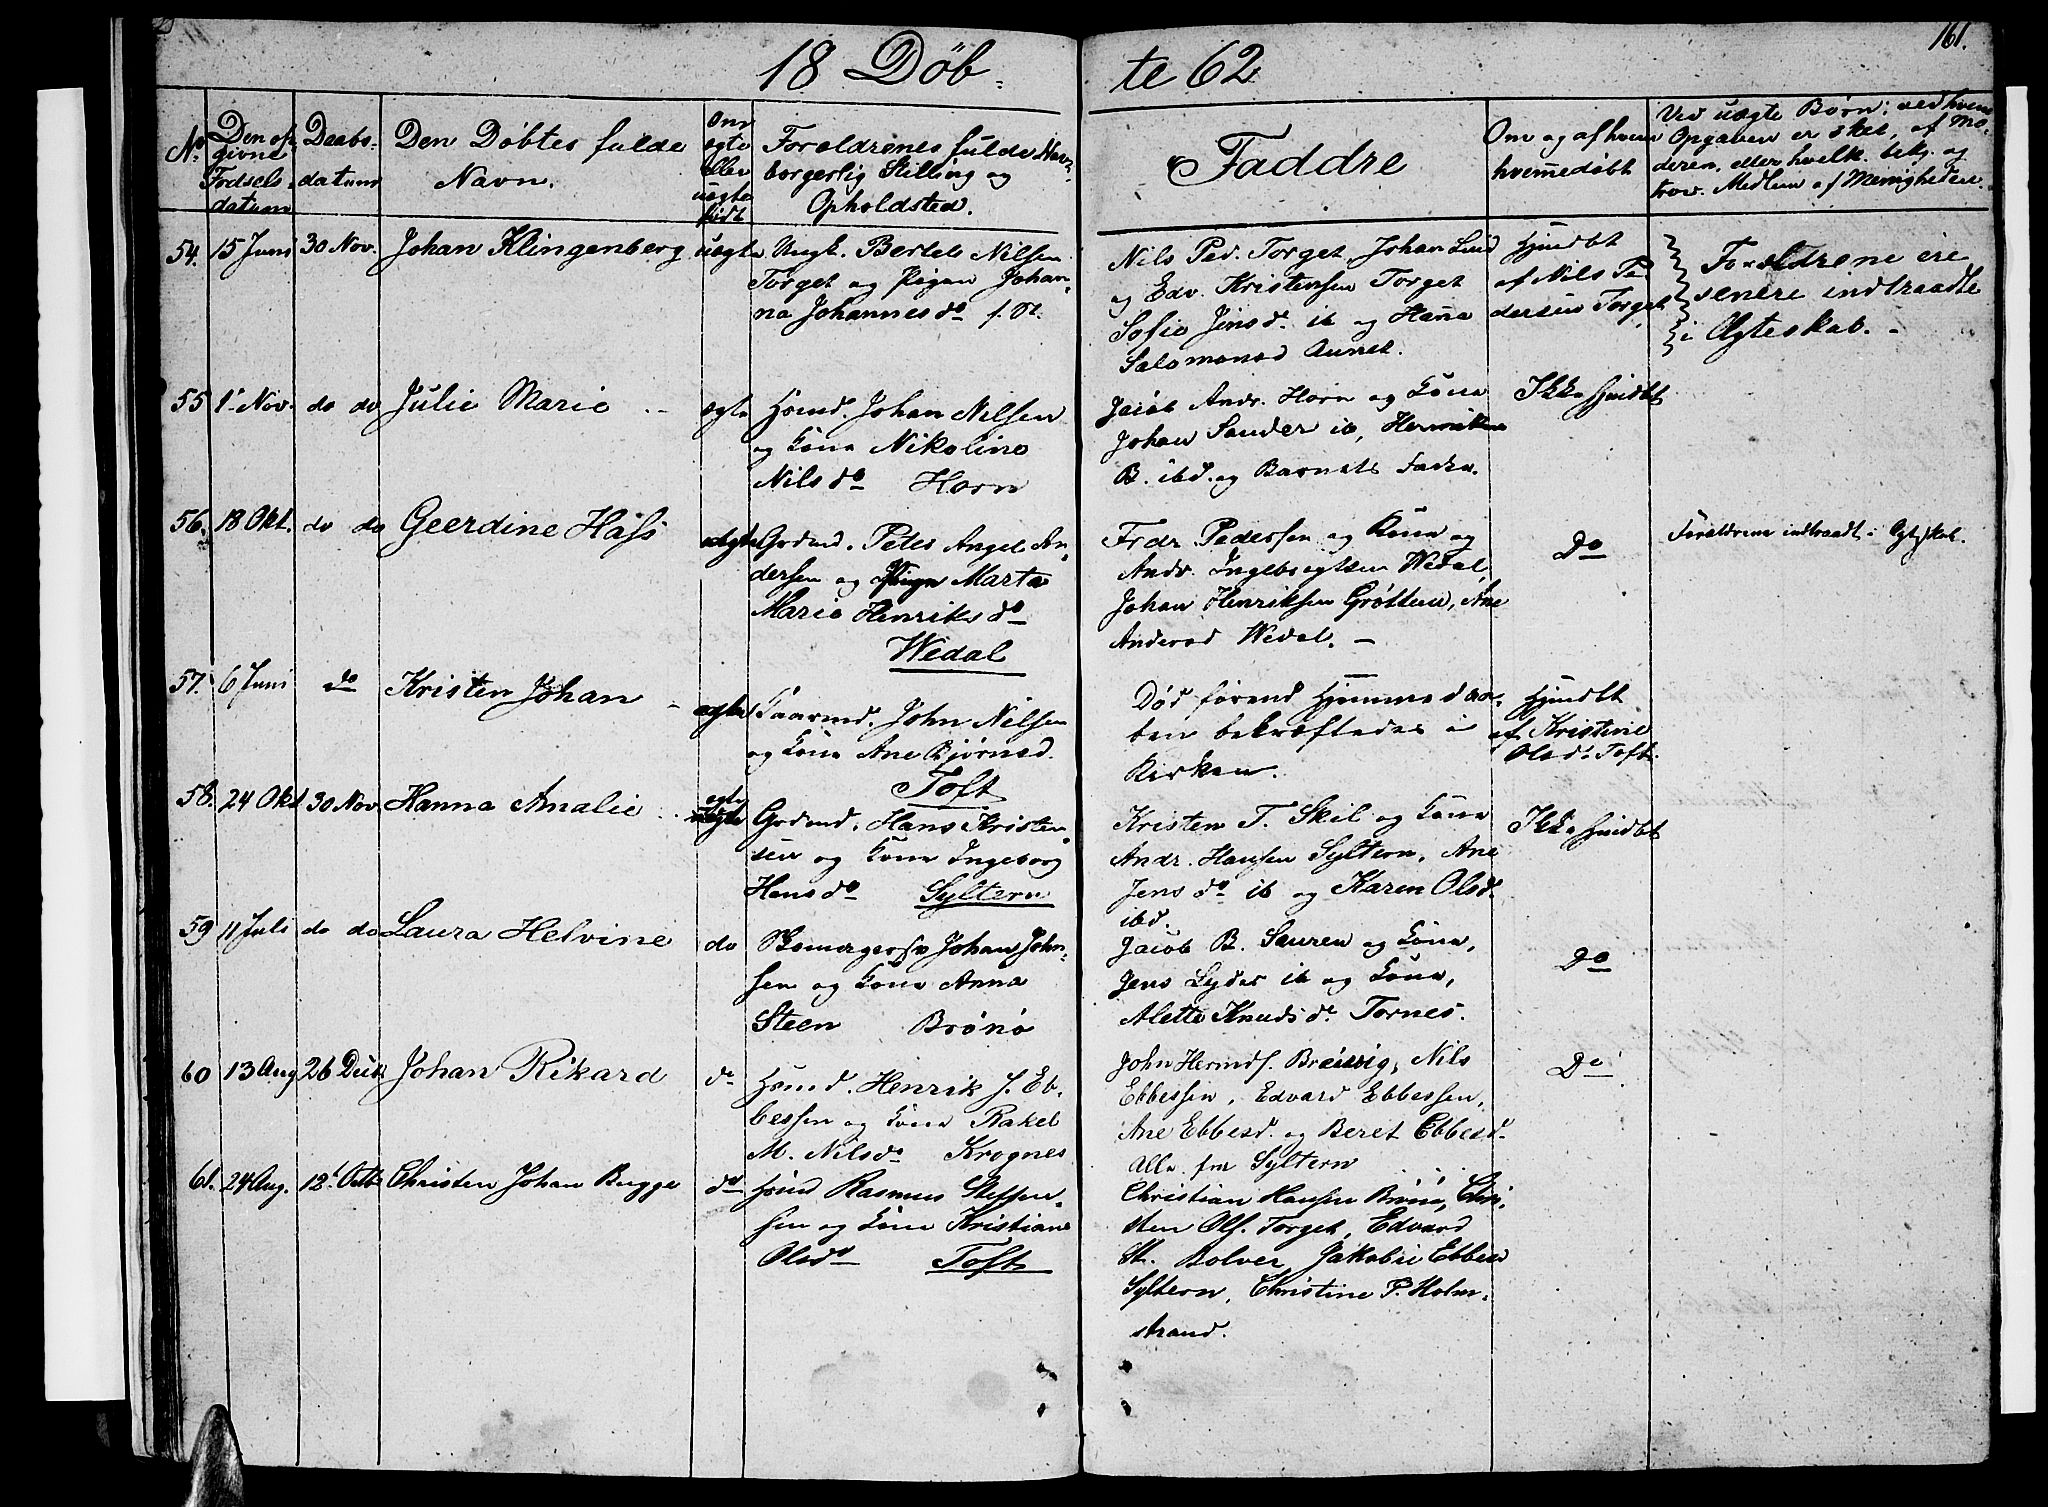 161.
18 Døb-
te 62
No
Den op-
givne
Fødsels-
datum
Daabs-
datum
Den Døbtes fulde
Navn.
Om
ægte
eller
uægte
født
Forældrenes fulde Navn,
borgerlig Stilling og
Opholdsted.
Faddre
Om og af hvem
hjemmedøbt
Ved uægte Børn: ved hvem
Opgaven er skeet, af Mo-
deren, eller hvilk. bekj. og
trov. Medlem af Menigheden.
54. 15 Juni 30 Nov. Johan Klingenberg uægte Ungk. Bertels Nilsen
Torget og Pigen Johan-
na Johannesdo f. St.
Nils Ped. Torget, Johan Lind
og Edv. Kristensen Torget
Sofie Jensd. ib og Hanna
Salomonsd Aunet.
Hjmdbt
af Nils Pe
dersen Torget
Forældrene ere
senere indtraadte
i Ægteskab. -
55 1 Nov. do do Julie Marie - ægte Hsmd. Johan Nilsen
og Kona Nikoline
Nilsdo Horn
Jacob Andr. Horn og Kona
Johan Sander ib, Henrikke
B. ibd. og Barnets Fader.
Ikke hjmdbt
56. 18 Okt. do do Geerdine Hass uægte Gaardmd. Peter Angel An-
dersen og Pigen Marta
Marie Henriksdo
Wedal
Frdr Pedersen og Kona og
Andr. Ingebrigtsen Wedal,
Johan Henriksen Grøttem, Ane
Andersd Wedal. -
Do
Forældrene indtraadt i Ægteskab.
57. 6 Juni do Kristen Johan - ægte Gaarmd. John Nilsen
og Kona Ane Bjørnsd.
Toft
Død førend Hjemmedaa-
ben bekræftedes i
Kirken.
Hjmdbt
af Kristine
Olsd. Toft.
58. 24 Okt 30 Nov. Hanna Amalie .. ægte Gaardmd. Hans Kristen-
sen og Kona Ingeborg
Hansdo Syltern
Kristen T. Skil og Kona
Andr. Hansen Syltern, Ane
Jensdo ib og Karen Olsd.
ibd.
Ikke hjmdbt
59 11 Juli do do Laura Helvine do Skomagersv Johan John-
sen og Kona Anna
Steen Brønø
Jacob B. Sauren og Kona,
Jens Lyder ib og Kona,
Alette Knudsd. Tornes.
Do
60 13 Aug 26 Dec Johan Rikard do Hsmd. Henrik J. Eb-
besen og Kona Rakel
M. Nilsdo Krognes
John Hermds. Breivig, Nils
Ebbessen, Edvard Ebbessen,
Ane Ebbesd. og Beret Ebbesd.
Alle fra Syltern
Do
61. 24 Aug. 12 Octb Christen Johan Bugge do Hsmd Rasmus Steffen-
sen og Kona Kristiane
Olsdo Toft
Christian Hansen Brønø, Chri-
sten Ols. Torget, Edvard
St. Bolver, Jakobie Ebbesd
Syltern, Christine P. Holm-
strand.